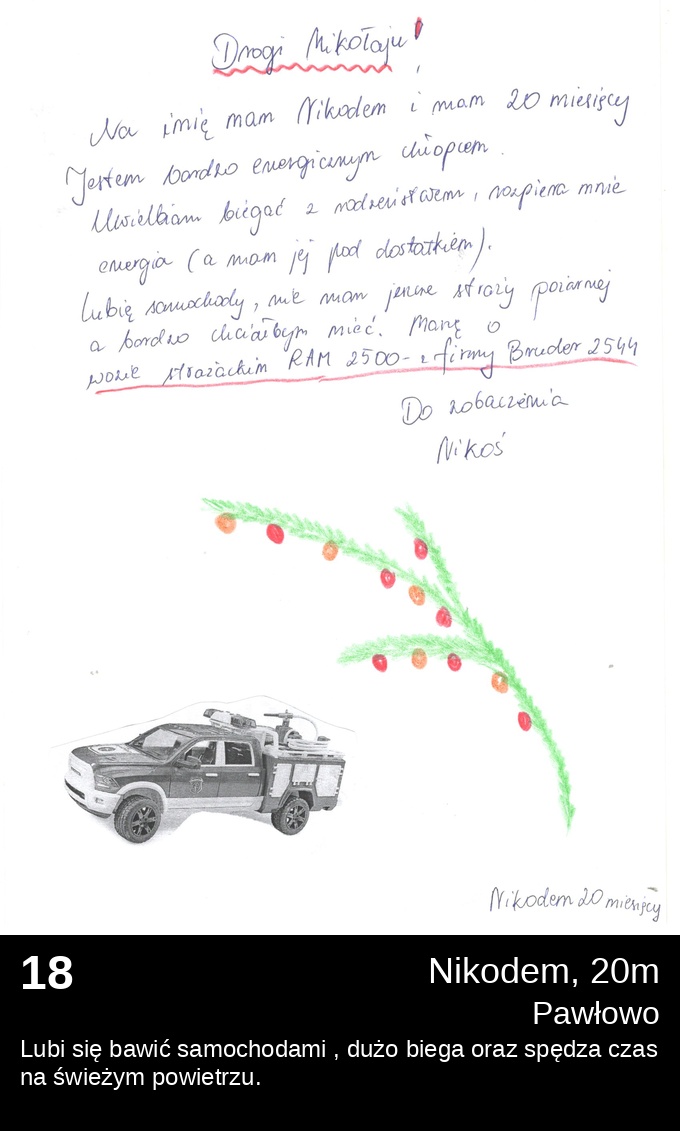 Drogi Mikołaju!
Na imię mam Nikodem i mam 20 miesięcy
Jestem bardzo energicznym chłopcem.
Uwielbiam biegać z rodzeństwem, rozpiera mnie
energia (a mam jej pod dostatkiem).
Lubię samochody, nie mam jeszcze straży pożarnej
a bardzo chciałbym mieć. Marzę o
wozie strażackim RAM 2500- z firmy Bruder 2544
Do zobaczenia
Nikoś
Nikodem 20 miesięcy
18
Nikodem, 20m
Pawłowo
Lubi się bawić samochodami , dużo biega oraz spędza czas
na świeżym powietrzu.